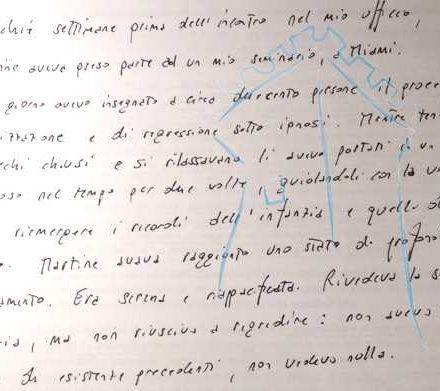 settimane prima dell'incontro nel mio ufficio,
aveva preso parte ad un mio seminario, a Miami.
giorno avevo insegnato a circa duecento persone il
e di regressione sotto ipnosi. Mentre
chiusi e si rilassavano li avevo portati
nel tempo per due volte, guidandoli con la
riemergere i ricordi dell'infanzia e quelli
Martine aveva raggiunto uno stato di
Era serena e riappacificata. Rivedeva la
, ma non riusciva a regredire: non aveva
esistente precedenti, non vedeva nulla.